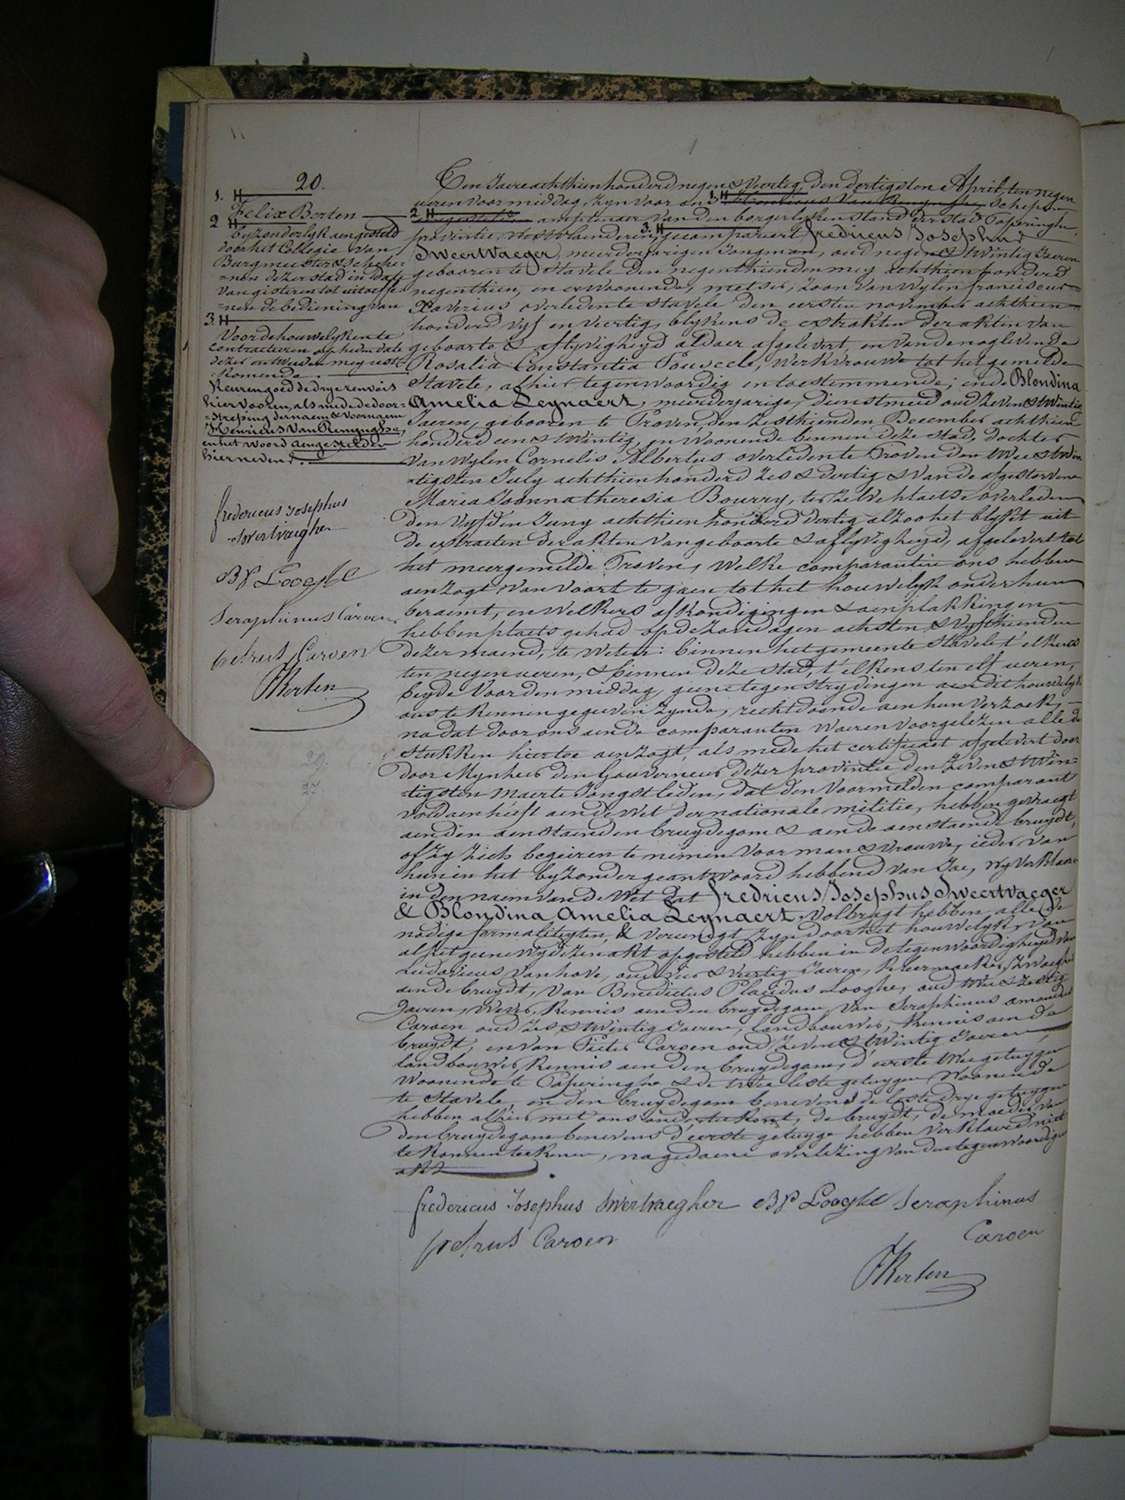 20.
1. H
Felix Berten
2 H
byzonderlyk aengesteld
door het Collegie van
Burgmeester & Schepe-
nen dezer stad in date
van gisteren tot uitoeffe-
nen de bediening van
3. H
Voor de houwelyken te
contracteren op heden date
dezer
Komende.
Keuren goed de drye renvois
hier vooren, als mede de door-
-streping der naem & voornaem
Henricus Van Renynghe,
en het woord aengestelden
hierneven.
fredericus Josephus
Swertvaegher
BP Looghe
Seraphinus Caroen
petrus Caroen
F Berten
Ten Jaere achthien honderd negen & Veertig, den dertigsten April, ten negen
ueren voor middag, zyn voor ons 1. H Henricus Van Renynghe, Schepen
2 H aengestelde amptenaer van den borgerlyken stand der stad Poperinghe
provintie Westvlaenderen, 3. H gecompareert fredricus Josephus
Sweertvaeger, meerderjarigen Jongman, oud negen & twintig Jaeren
geboren te Stavele den negenthienden mey achthien honderd
negenthien, en er woonende, metser, zoon van Wylen franciscus
Xaverius overleden te Stavele den eersten november achthien
honderd vyf en veertig, blykens de extrakten der akten van
geboorte & aflyvigheyd aldaer afgelevert, en van de nog levende
Rosalia Constantia Pauwels, werkvrouwe tot het gemelde
Stavele, alhier tegenwoordig en toestemmende; ende Blondina
Amelia Leynaert, meerderjarige, dienstmeid oud zeven & twintig
Jaeren, geboren te Proven, den zesthienden December achthien
honderd een & twintig, en woonende binnen deze stad, dochter
van Wylen Cornelis Albertus overleden te Proven den twee & twin-
tigsten July achthien honderd zes & dertig & van de afgestorvene
Maria Joanna theresia Bourry, ter zelve plaetse overleden
den vyfden Juny achthien honderd dertig alzoo het blykt uit
de extracten der akten van geboorte & aflyvigheyd, afgelevert tot
het meergemelde Proven, Welke comparanten ons hebben
aenzogt van voort te gaen tot het houwelyk onder hun
beraemt, en welkers afkondigingen & aenplakkingen
hebben plaets gehad op de zondagen achsten & vyfthienden
dezer maend, te weten: binnen het gemeente Stavele t'elkens
ten negen ueren, & binnen deze stad, t'elkens ten elf ueren,
beyde voor den middag, geene tegenstrydingen aen dit houwelyk
ons te kennen gegeven zynde, recht doende aen hun verzoek,
na dat door ons aen de comparanten waeren voorgelezen alle de
stukken hiertoe aenzogt, als mede het certificaet afgelevert door
door Mynheer den Gouverneur dezer provintie den zeven & twin-
tigsten Maerte Jongstleden, dat den voormelden comparant
voldaen heeft aen de Wet der nationale militie, hebben gevraegt
aen den aenstaenden bruydegom & aen de aenstaende bruydt,
of zy zich begeiren te nemen voor man & vrouwe, ieder van
hun en het byzonder geantwoord hebbend van Jae, wy verklaeren
in den naem van de Wet dat fredricus Josephus Sweertvaeger
& Blondina Amelia Leynaert, volbragt hebben, alle de
nodige formaliteyten, & vereenigt zyn door het houwelyk, van
al het gene wy dezen akt opgesteld hebben in de tegenwoordigheyd van
Ludovicus Vanhove, oud vier & veertig Jaeren,
aen de bruydt, van Benedictus Placidus Looghe, oud twee & zestig
Jaeren, Wever, Kennis aen den bruydegom, van Seraphinus amandus
Caroen oud zes & twintig Jaeren, landbouwer, Kennis aen de
bruydt, en van Pieter Caroen oud zeven & twintig Jaeren
landbouwer Kennis aen den bruydegom, d'eerste twee getuygen
woonende te Poperinghe & de twee leste getuygen woonende
te Stavele, en den bruydegom benevens de leste drye getuygen
hebben alhier met ons onderteekent, de bruydt, de moeder van
den bruydegom benevens d'eerste getuyge hebben verklaerd niet
te konnen teekenen, na gedaene overlezing van den tegenwoordigen
akt
fredericus Josephus Swertvaegher BP Looghe Seraphinus
petrus Caroen Caroen
F Berten